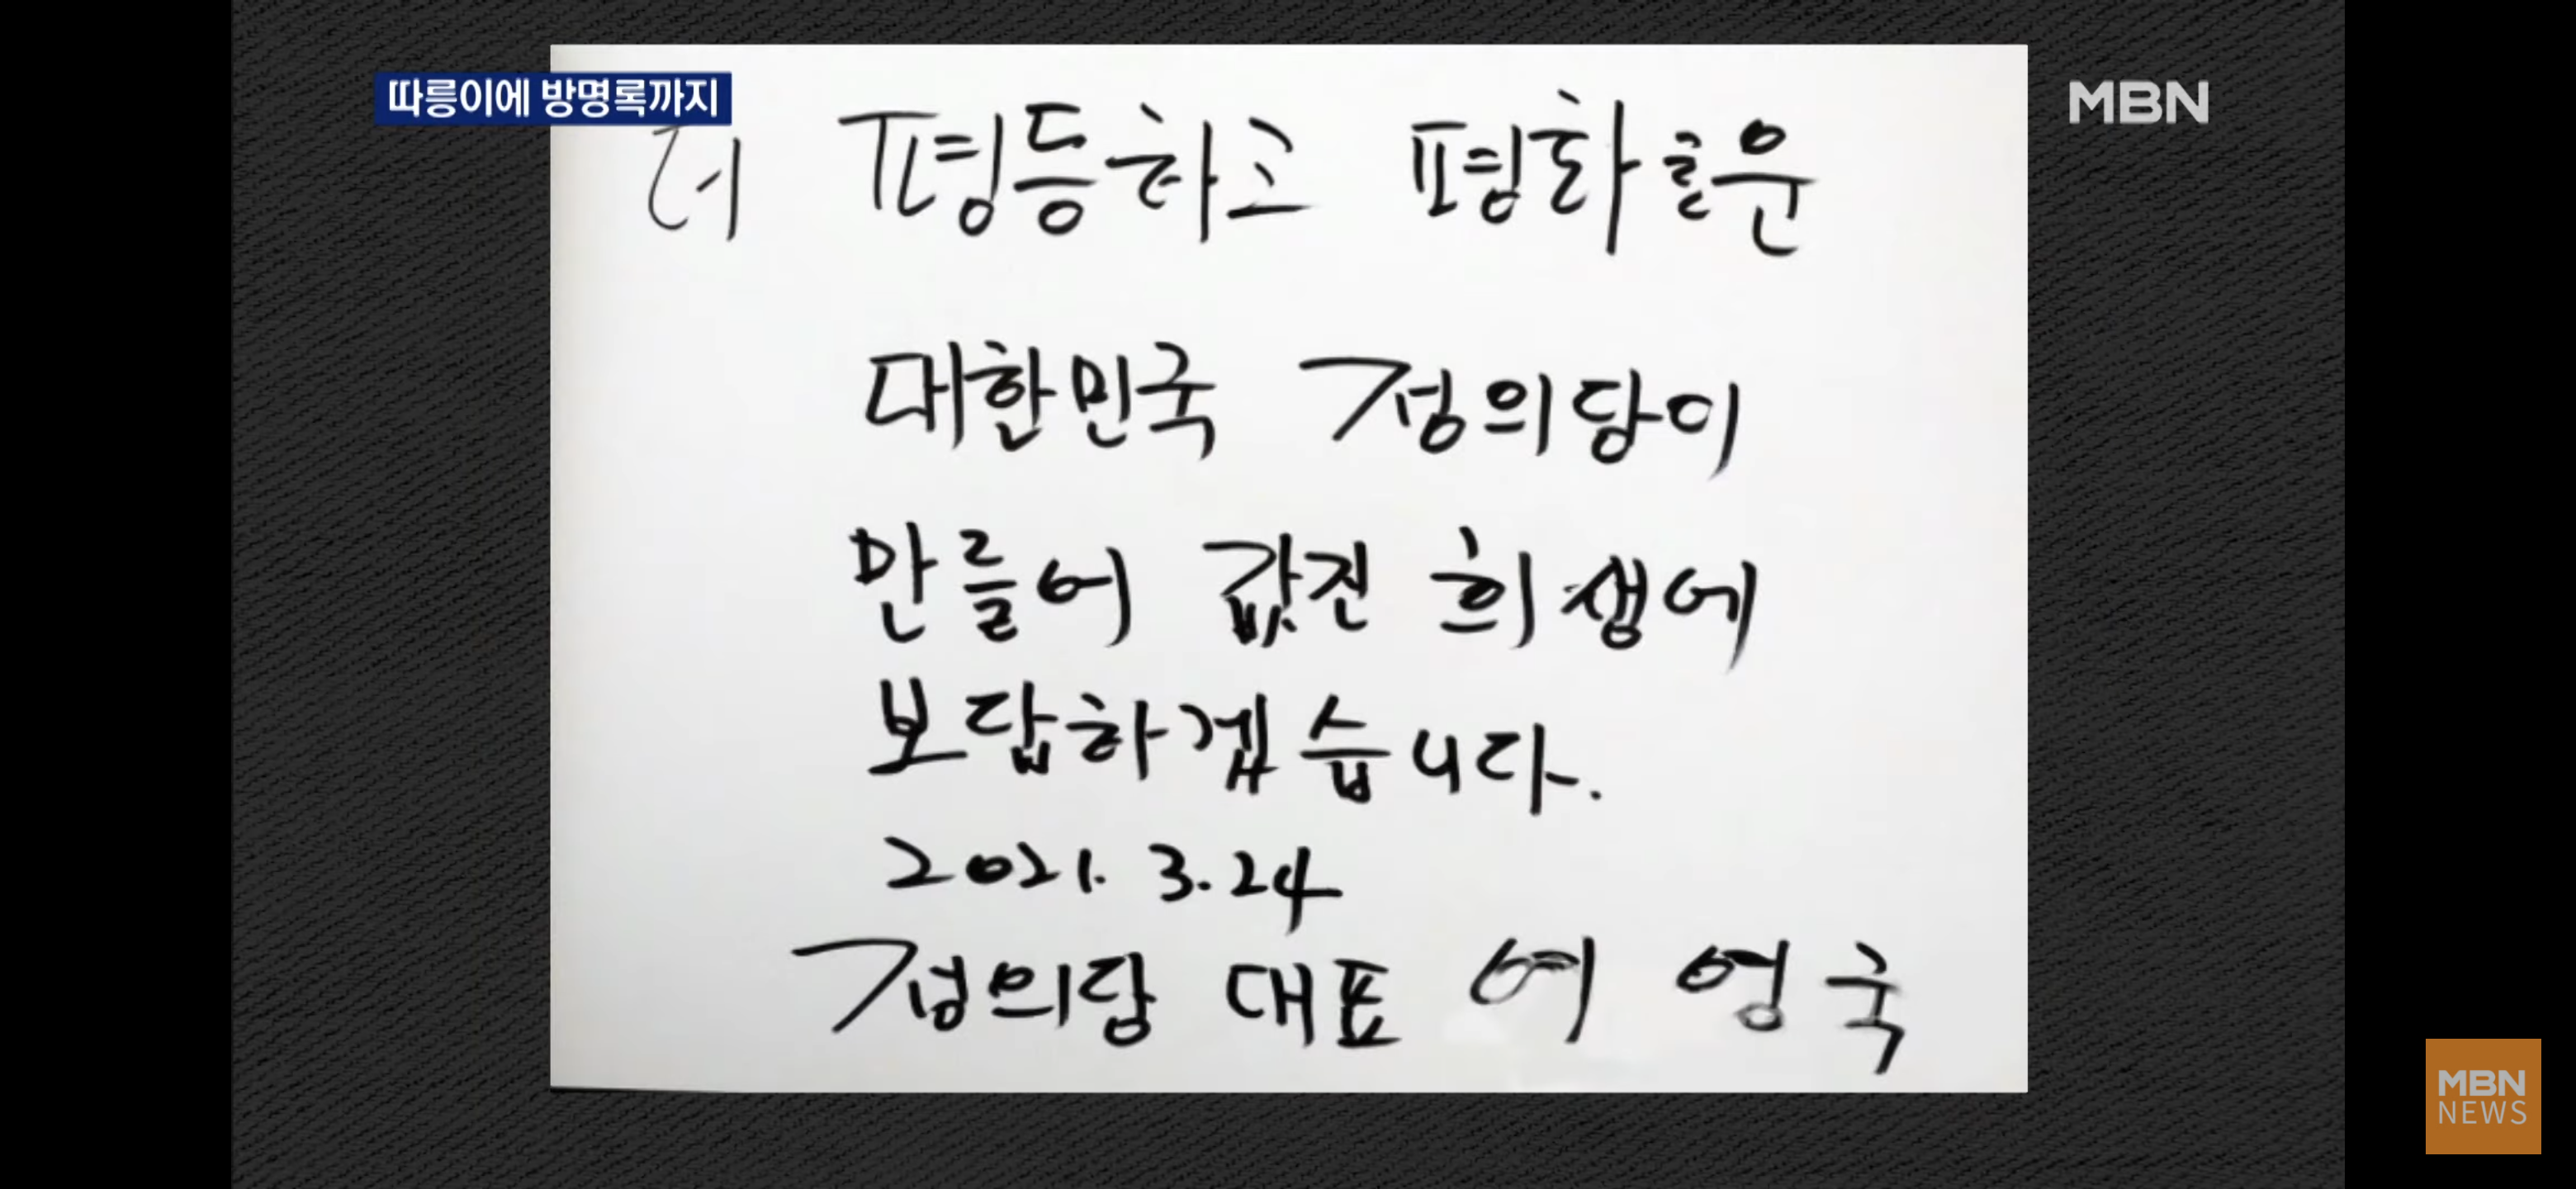 따릉이에 방명록까지
MBN
더 평등하고 평화로운
대한민국 정의당이
만들어 값진 희생에
보답하겠습니다.
2021. 3. 24
정의당 대표 여영국
MBN
NEWS